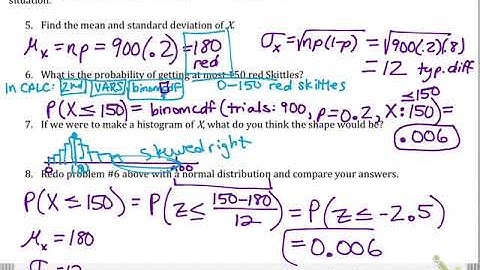 situation.
5. Find the mean and standard deviation of X.
μx = np = 900(.2) = 180 red
σx = √np(1-p) = √900(.2)(.8)
= 12 typ. diff
6. What is the probability of getting at most 150 red Skittles?
IN CALC: 2nd VARS binomcdf 0-150 red skittles
≤150
P(X ≤ 150) = binomcdf(trials: 900, p = 0.2, X: 150) =
.006
7. If we were to make a histogram of X, what do you think the shape would be?
skewed right
0 180 900
8. Redo problem #6 above with a normal distribution and compare your answers.
P(X ≤ 150) = P(Z ≤ 150-180/12) = P(Z ≤ -2.5)
μx = 180
= 0.006